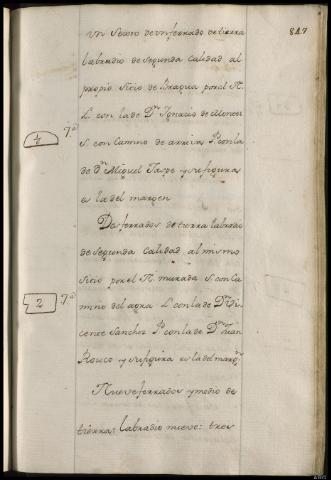 847
Un Sexto de un ferrado de tierra
labradio de segunda calidad al
propio sitio de Bragua por el N.
L. con la de Dn. Ignacio de
S. con Camino de arriva P. con la
de Dn. Miguel Taspe y su figura
es la del margen
Dos ferrados de tierra labradio
de segunda calidad al mismo
sitio por el N. murada S. con Ca
mino del agra L. con la de Dn. Vi
cente Sanchez P. con la de Dn. Juan
Rouco y su figura es la del margn.
Nueve ferrados y medio de
tierra: labradio nueve: tres
7.a
7.a
2